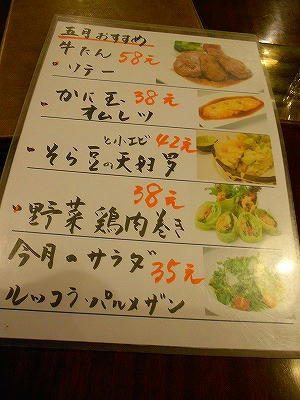 五月おすすめ
牛たん 58元
ソテー
かに玉 38元
オムレツ
と小エビ 42元
そら豆の天ぷら
38元
野菜鶏肉巻き
今月のサラダ 35元
ルッコラ・パルメザン